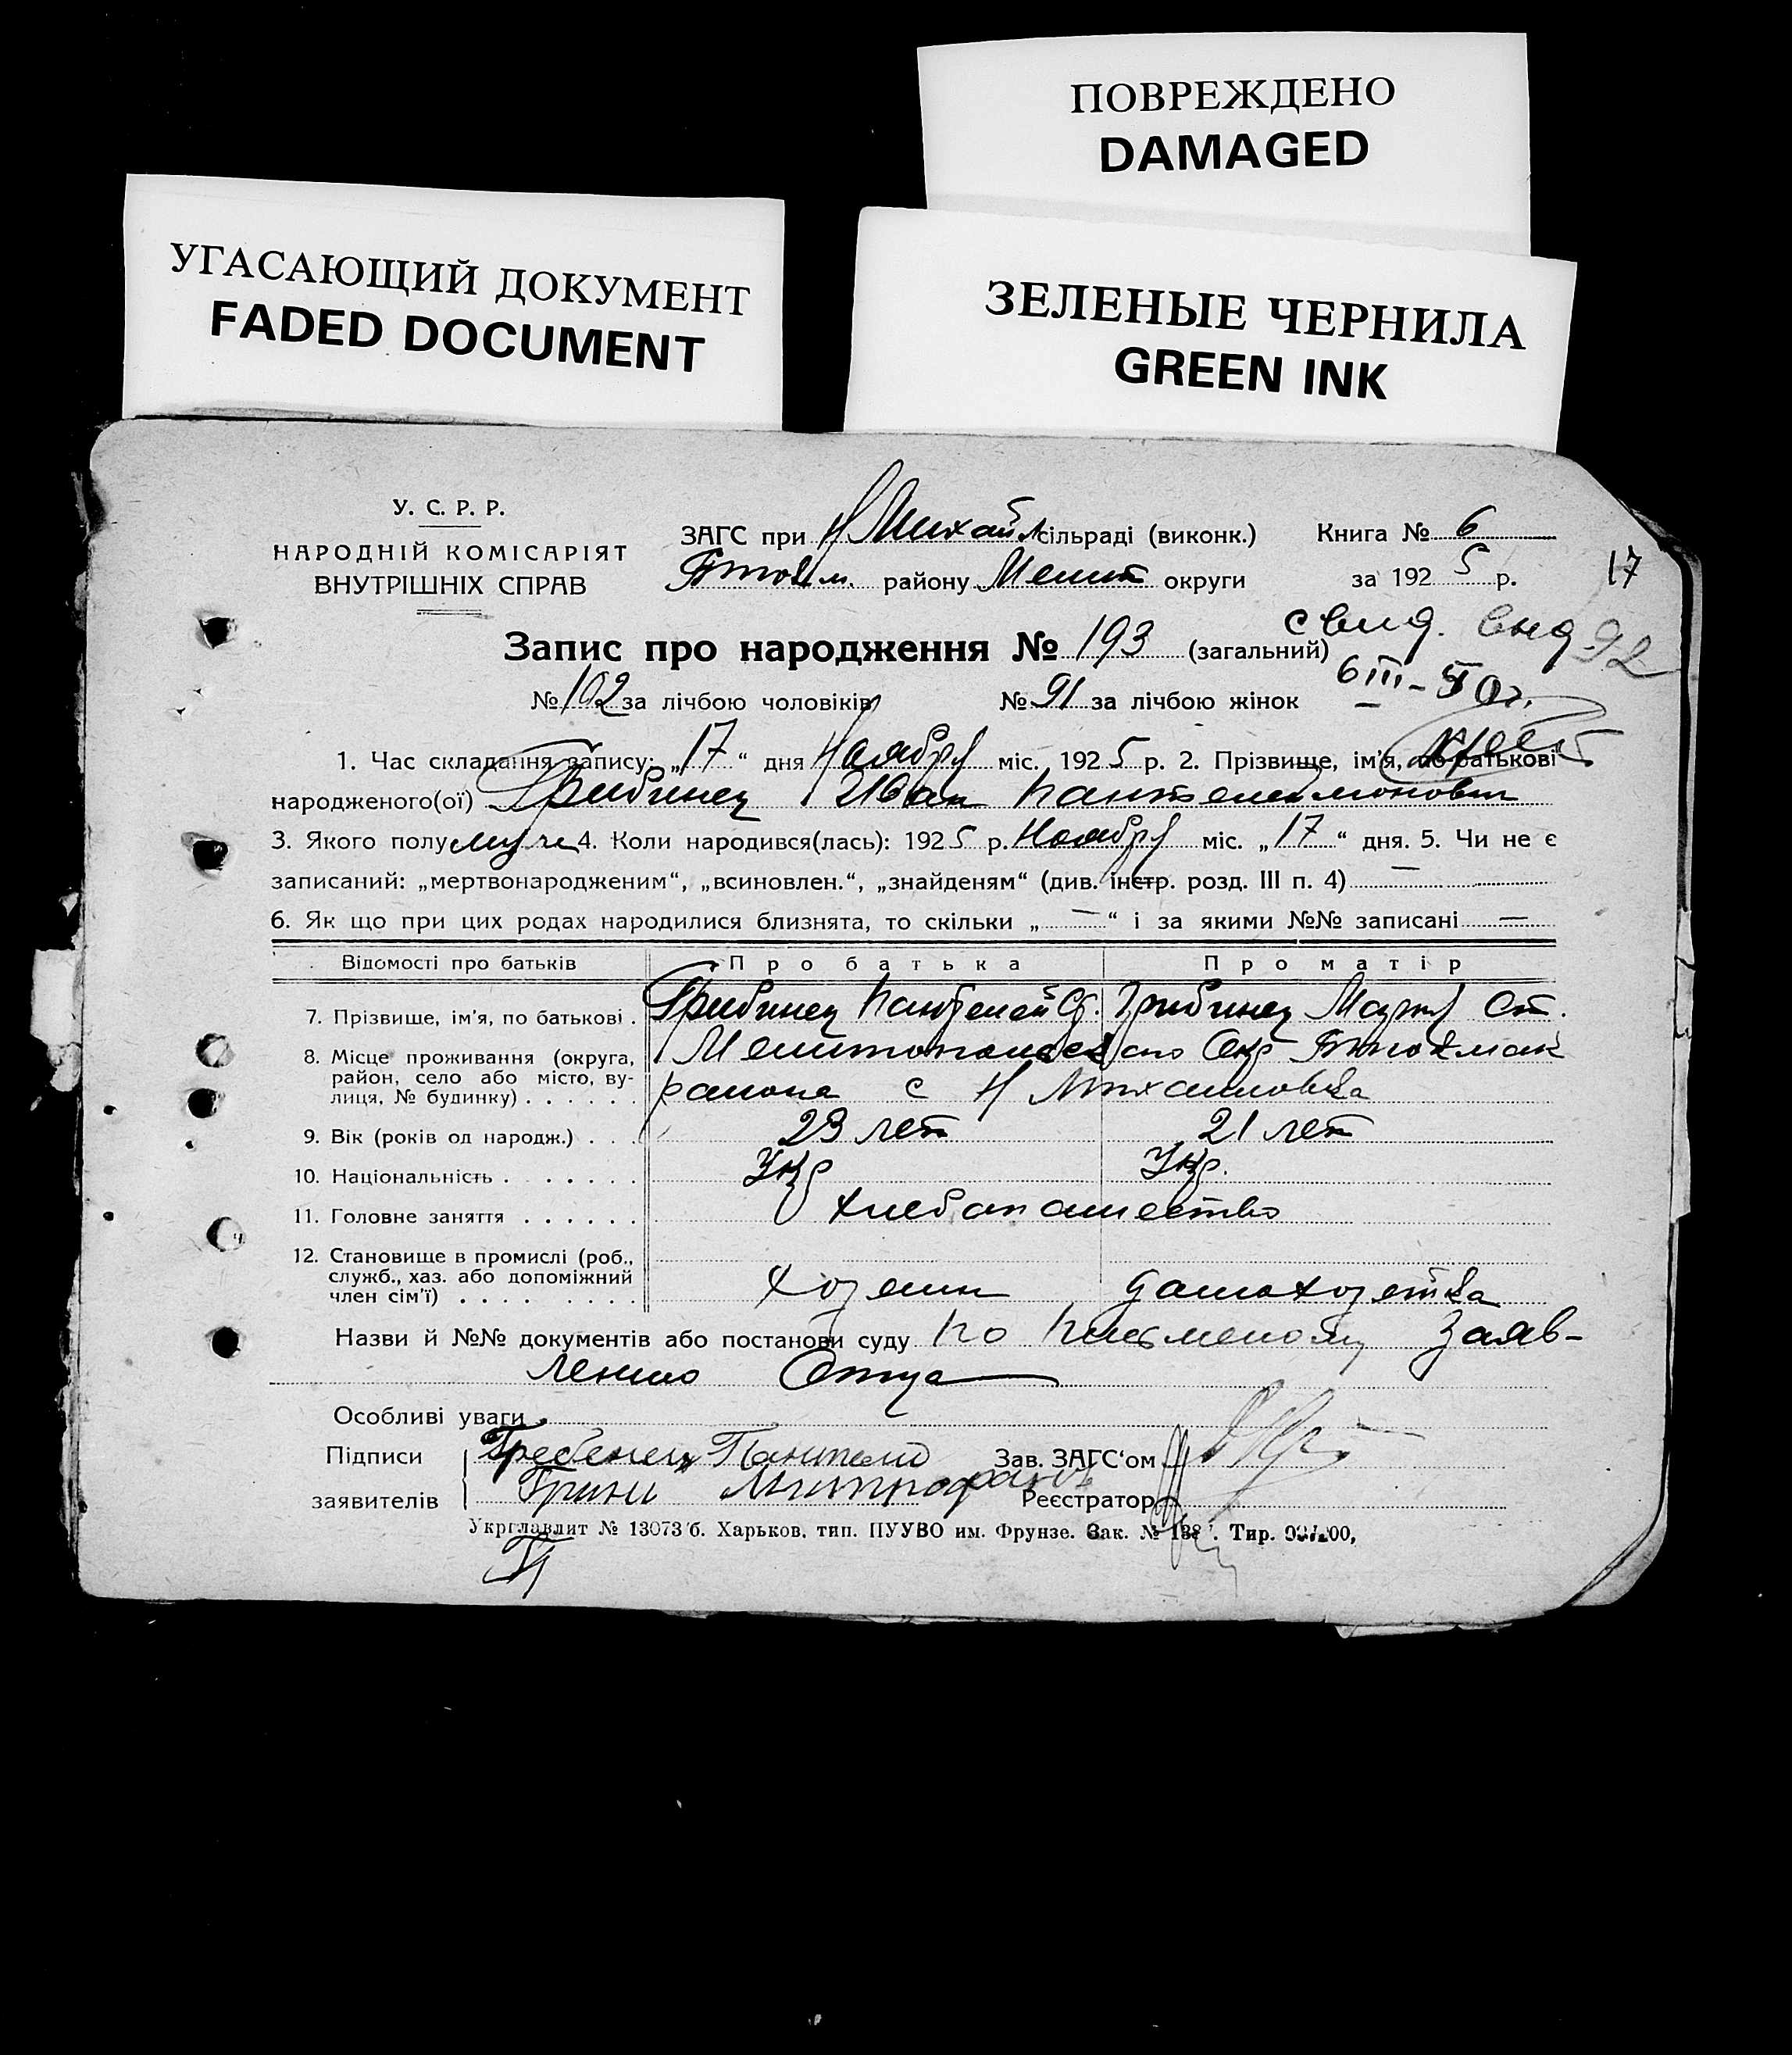 ПОВРЕЖДЕНО
DAMAGED
УГАСАЮЩИЙ ДОКУМЕНТ
FADED DOCUMENT
ЗЕЛЕНЫЕ ЧЕРНИЛА
GREEN INK
У. С. Р. Р.
НАРОДНІЙ КОМІСАРІЯТ
ВНУТРІШНІХ СПРАВ
ЗАГС при Н Михайл сільраді (виконк.) Книга № 6
району Мелит округи за 1925 р. 17
Запис про народження № 193 (загальний) свид. 92
№ 102 за лічбою чоловіків № 91 за лічбою жінок 6 III – 50 г.
1. Час складання запису: „17“ дня Ноября міс. 1925 р. 2. Прізвище, ім'я, по батькові
народженого(ої) Грибинец Иван Пантелеимонович
3. Якого полу муж 4. Коли народився(лась): 1925 р. Ноября міс. „17“ дня. 5. Чи не є
записаний: „мертвонародженим“, „всиновлен.“, „знайденям“ (див. інстр. розд. III п. 4) —
6. Як що при цих родах народилися близнята, то скільки „—“ і за якими №№ записані —
Відомості про батьків Про батька Про матір
7. Прізвище, ім'я, по батькові . Грибинец Пантелей Ст. Грибинец Мария Ст.
8. Місце проживання (округа, район, село або місто, вулиця, № будинку) . . . . . . Мелитопольского Окр Токмак
района с Н Михайловка
9. Вік (років од народж.) . . . 23 лет 21 лет
10. Національність . . . . . . . Укр Укр.
11. Головне заняття . . . . . . Хлебопашество
12. Становище в промислі (роб., служб., хаз. або допоміжний член сім'ї) . . . . . . . . Хозеин домохозейка
Назви й №№ документів або постанови суду По Письменому Заяв-
лению Отца
Особливі уваги
Підписи Гребенец Пантелей Зав. ЗАГС'ом
заявителів Митрофан Реєстратор
Укрглавлит № 13073/б. Харьков, тип. ПУУВО им. Фрунзе. Зак. № Тир.